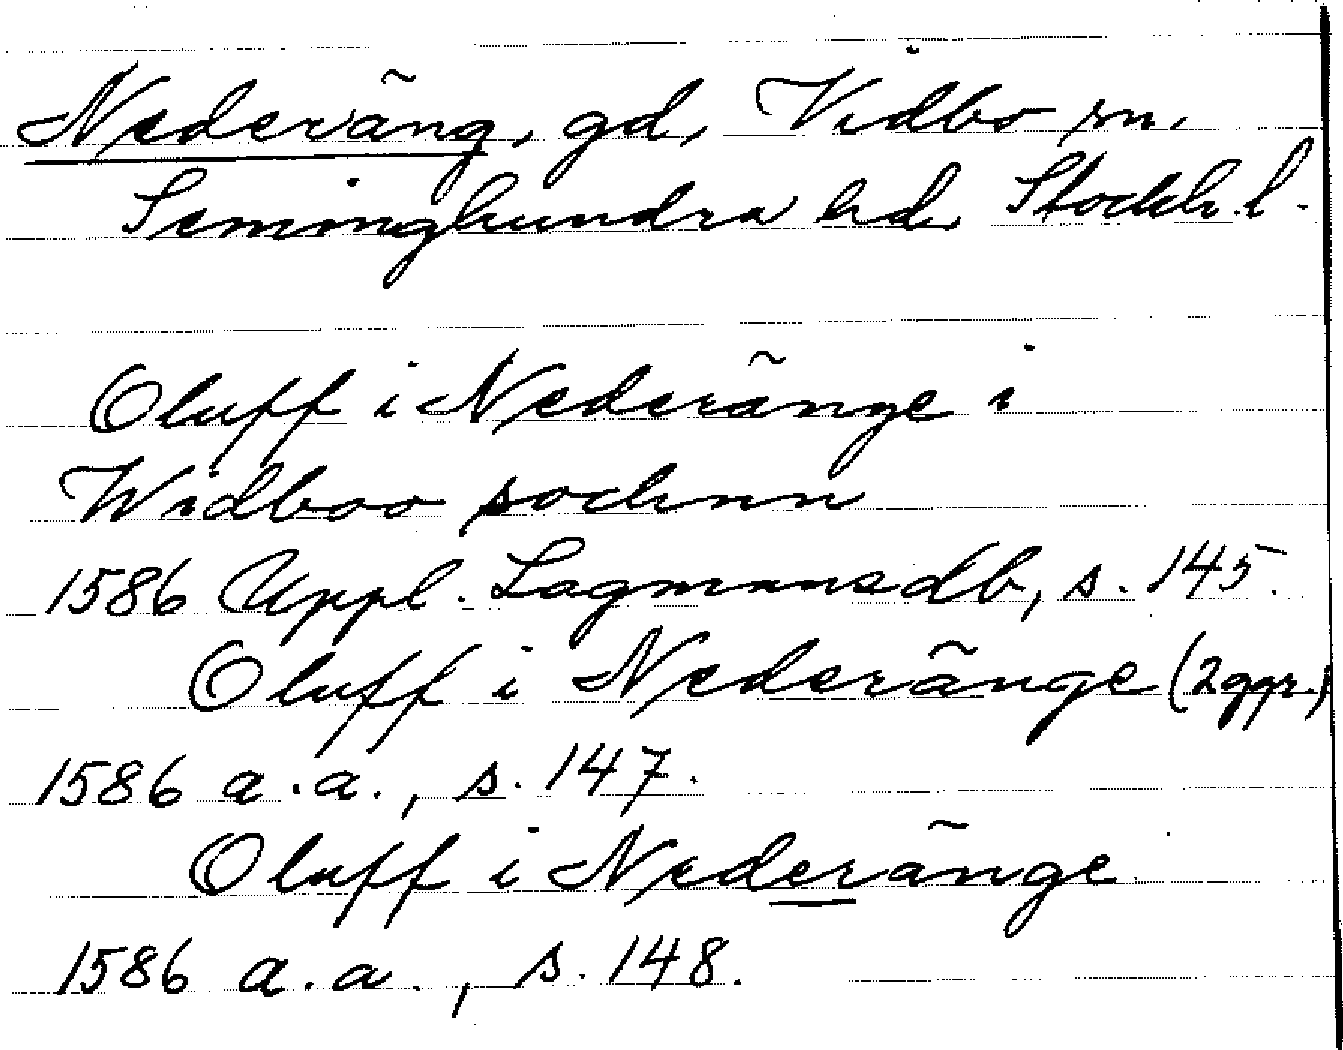 Nederäng, gd, Vidbo sn.
Seminghundra hd, Stockh. l.
Oluff i Nederänge i
Widboo sochnn
1586 Uppl. Lagmansdb, s. 145.
Oluff i Nederänge (2 ggr.)
1586 a.a., s. 147.
Oluff i Nederänge
1586 a.a., s. 148.